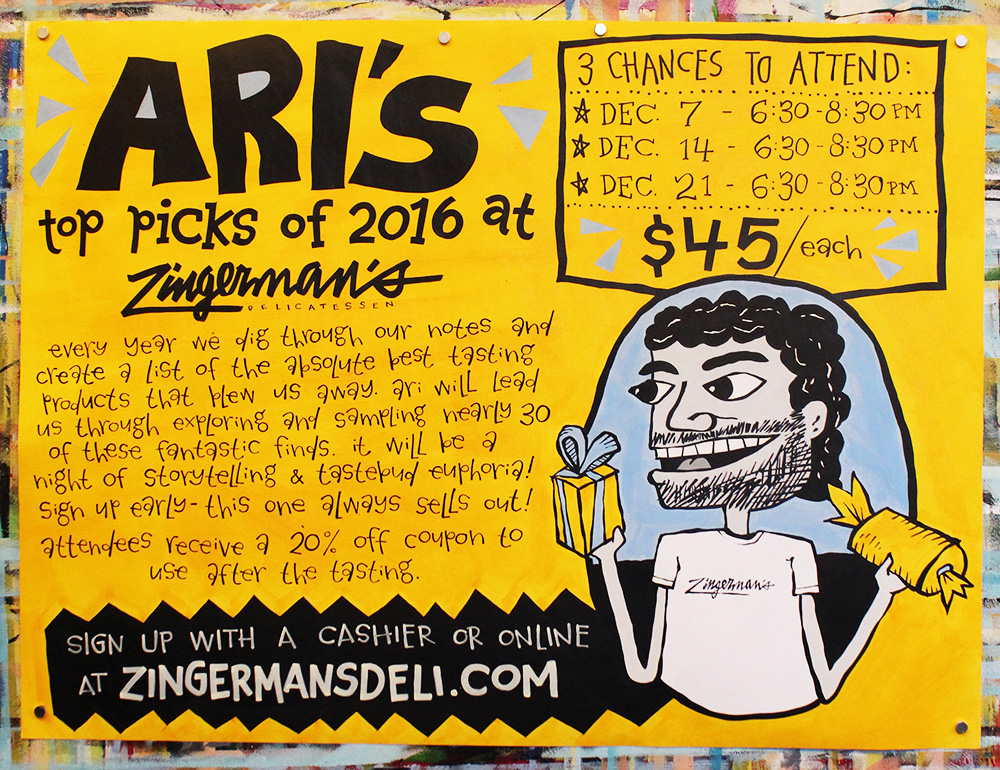 ARI'S
top picks of 2016 at
Zingerman's
DELICATESSEN
every year we dig through our notes and
create a list of the absolute best tasting
products that blew us away. ari will lead
us through exploring and sampling nearly 30
of these fantastic finds. it will be a
night of storytelling & tastebud euphoria!
sign up early - this one always sells out!
attendees receive a 20% off coupon to
use after the tasting.
SIGN UP WITH A CASHIER OR ONLINE
AT ZINGERMANSDELI.COM
3 CHANCES TO ATTEND:
☆ DEC. 7 - 6:30 - 8:30 PM
☆ DEC. 14 - 6:30 - 8:30 PM
☆ DEC. 21 - 6:30 - 8:30 PM
$45/each
Zingerman's